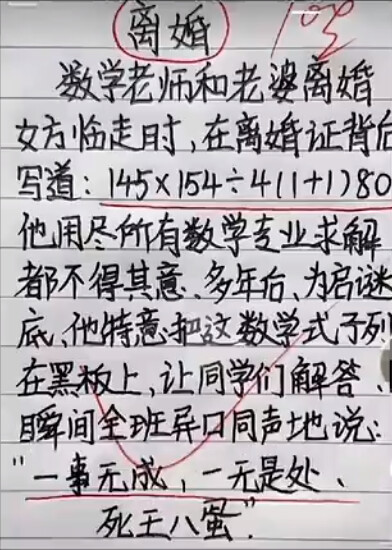 离婚
数学老师和老婆离婚
女方临走时,在离婚证背后
写道:145×154÷4(1+1)80
他用尽所有数学专业求解
都不得其意、多年后、为启谜
底、他特意把这数学式子列
在黑板上,让同学们解答、
瞬间全班异口同声地说:
"一事无成,一无是处、
死王八蛋".